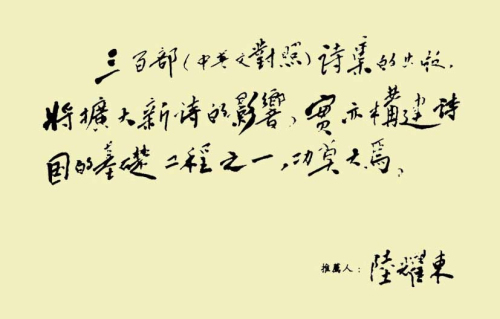 三百部(中英文對照)詩集的出版,
將擴大新詩的影響,實亦構建詩
國的基礎工程之一,功莫大焉。
推薦人：陸耀東